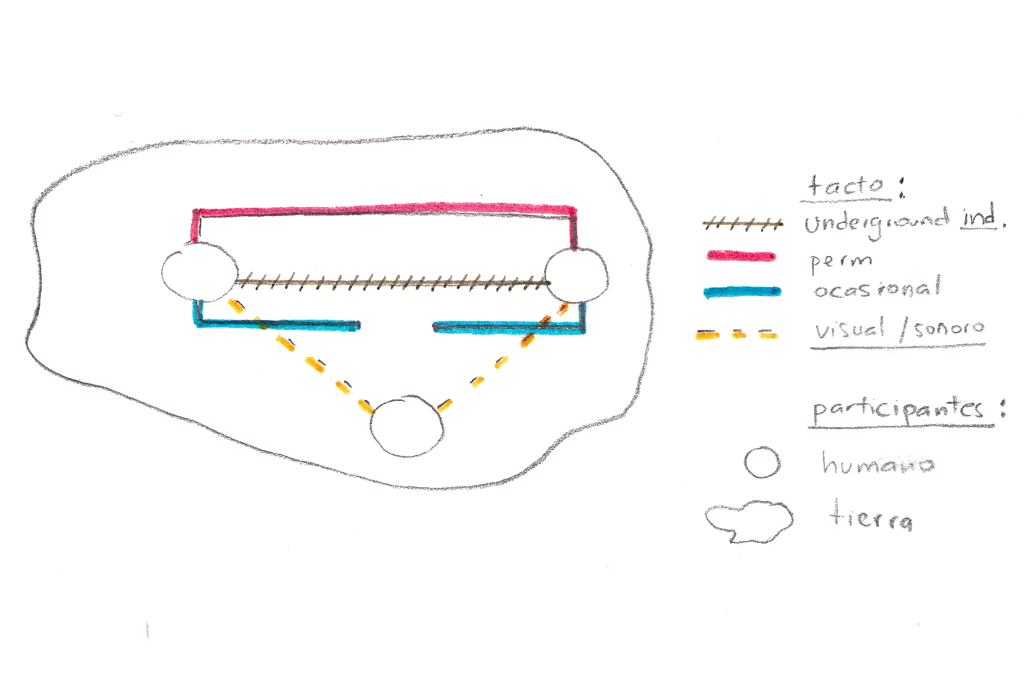 tacto:
underground ind.
perm
ocasional
visual/sonoro
participantes:
humano
tierra